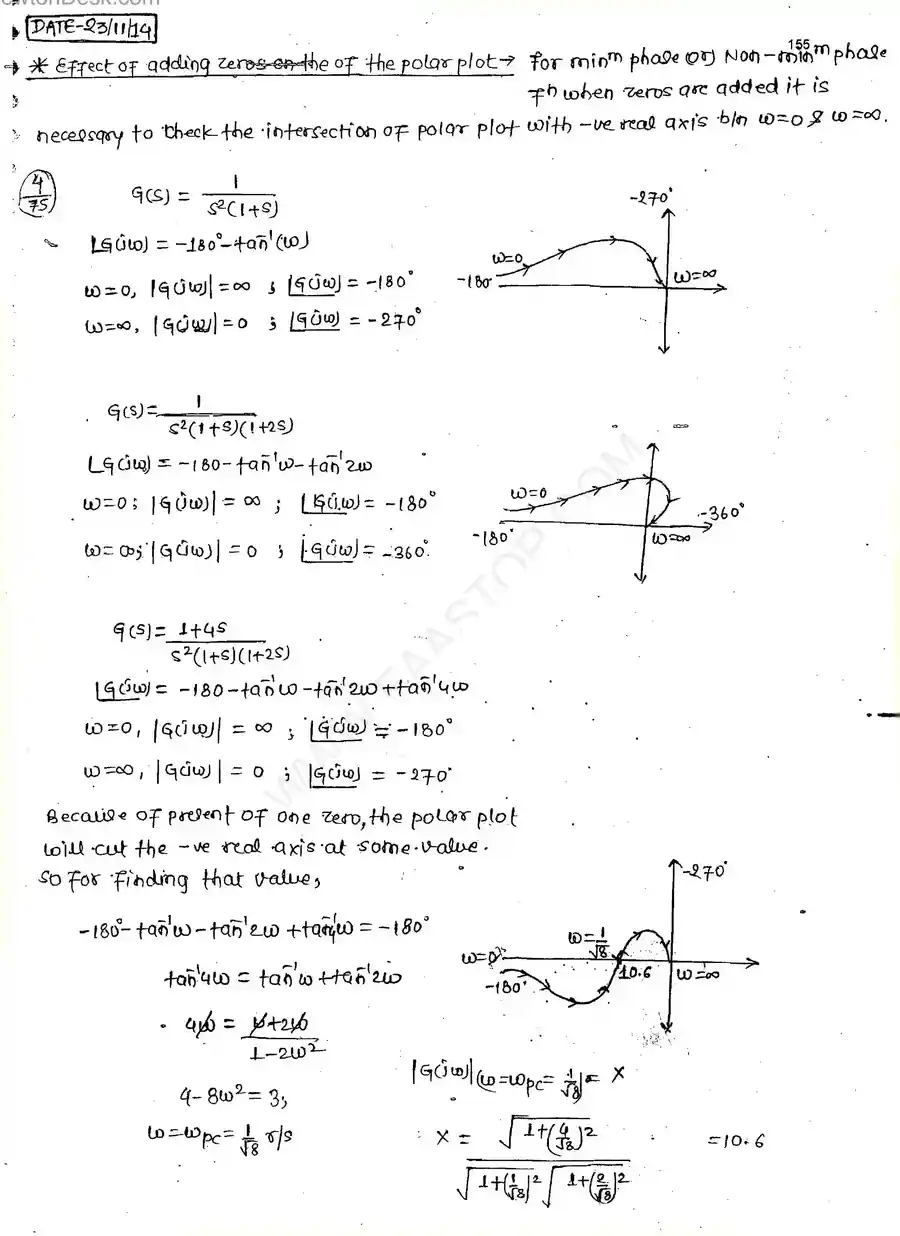 ewtonDesk.com
DATE-23/11/14
155
* Effect of adding zeros on the of the polar plot → for minᵐ phase (or) Non-minᵐ phase
fⁿ when zeros are added it is
necessary to check the intersection of polar plot with -ve real axis b/n ω=0 & ω=∞.
4/75
G(s) = 1/(s²(1+s))
∠G(jω) = -180°-tan⁻¹(ω)
ω=0, |G(jω)|=∞ ; ∠G(jω) = -180°
ω=∞, |G(jω)|=0 ; ∠G(jω) = -270°
-270°
ω=0
-180
ω=∞
G(s)= 1/(s²(1+s)(1+2s))
∠G(jω) = -180-tan⁻¹ω-tan⁻¹2ω
ω=0; |G(jω)| = ∞ ; ∠G(jω) = -180°
ω=∞; |G(jω)| = 0 ; ∠G(jω) = -360°
ω=0
-360°
-180°
ω=∞
G(s)= (1+4s)/(s²(1+s)(1+2s))
∠G(jω) = -180-tan⁻¹ω-tan⁻¹2ω+tan⁻¹4ω
ω=0, |G(jω)| = ∞ ; ∠G(jω) = -180°
ω=∞, |G(jω)| = 0 ; ∠G(jω) = -270°
Because of present of one zero, the polar plot
will cut the -ve real axis at some value.
So for finding that value,
-180°-tan⁻¹ω-tan⁻¹2ω+tan⁻¹4ω = -180°
tan⁻¹4ω = tan⁻¹ω+tan⁻¹2ω
4ω = (ω+2ω)/(1-2ω²)
4-8ω²=3,
ω=ωpc= 1/√8 r/s
-270°
ω=1/√8
ω=0
10.6
ω=∞
-180°
|G(jω)|(ω=ωpc= 1/√8) = x
x = √(1+(4/√8)²) / (√(1+(1/√8)²) √(1+(2/√8)²)) =10.6